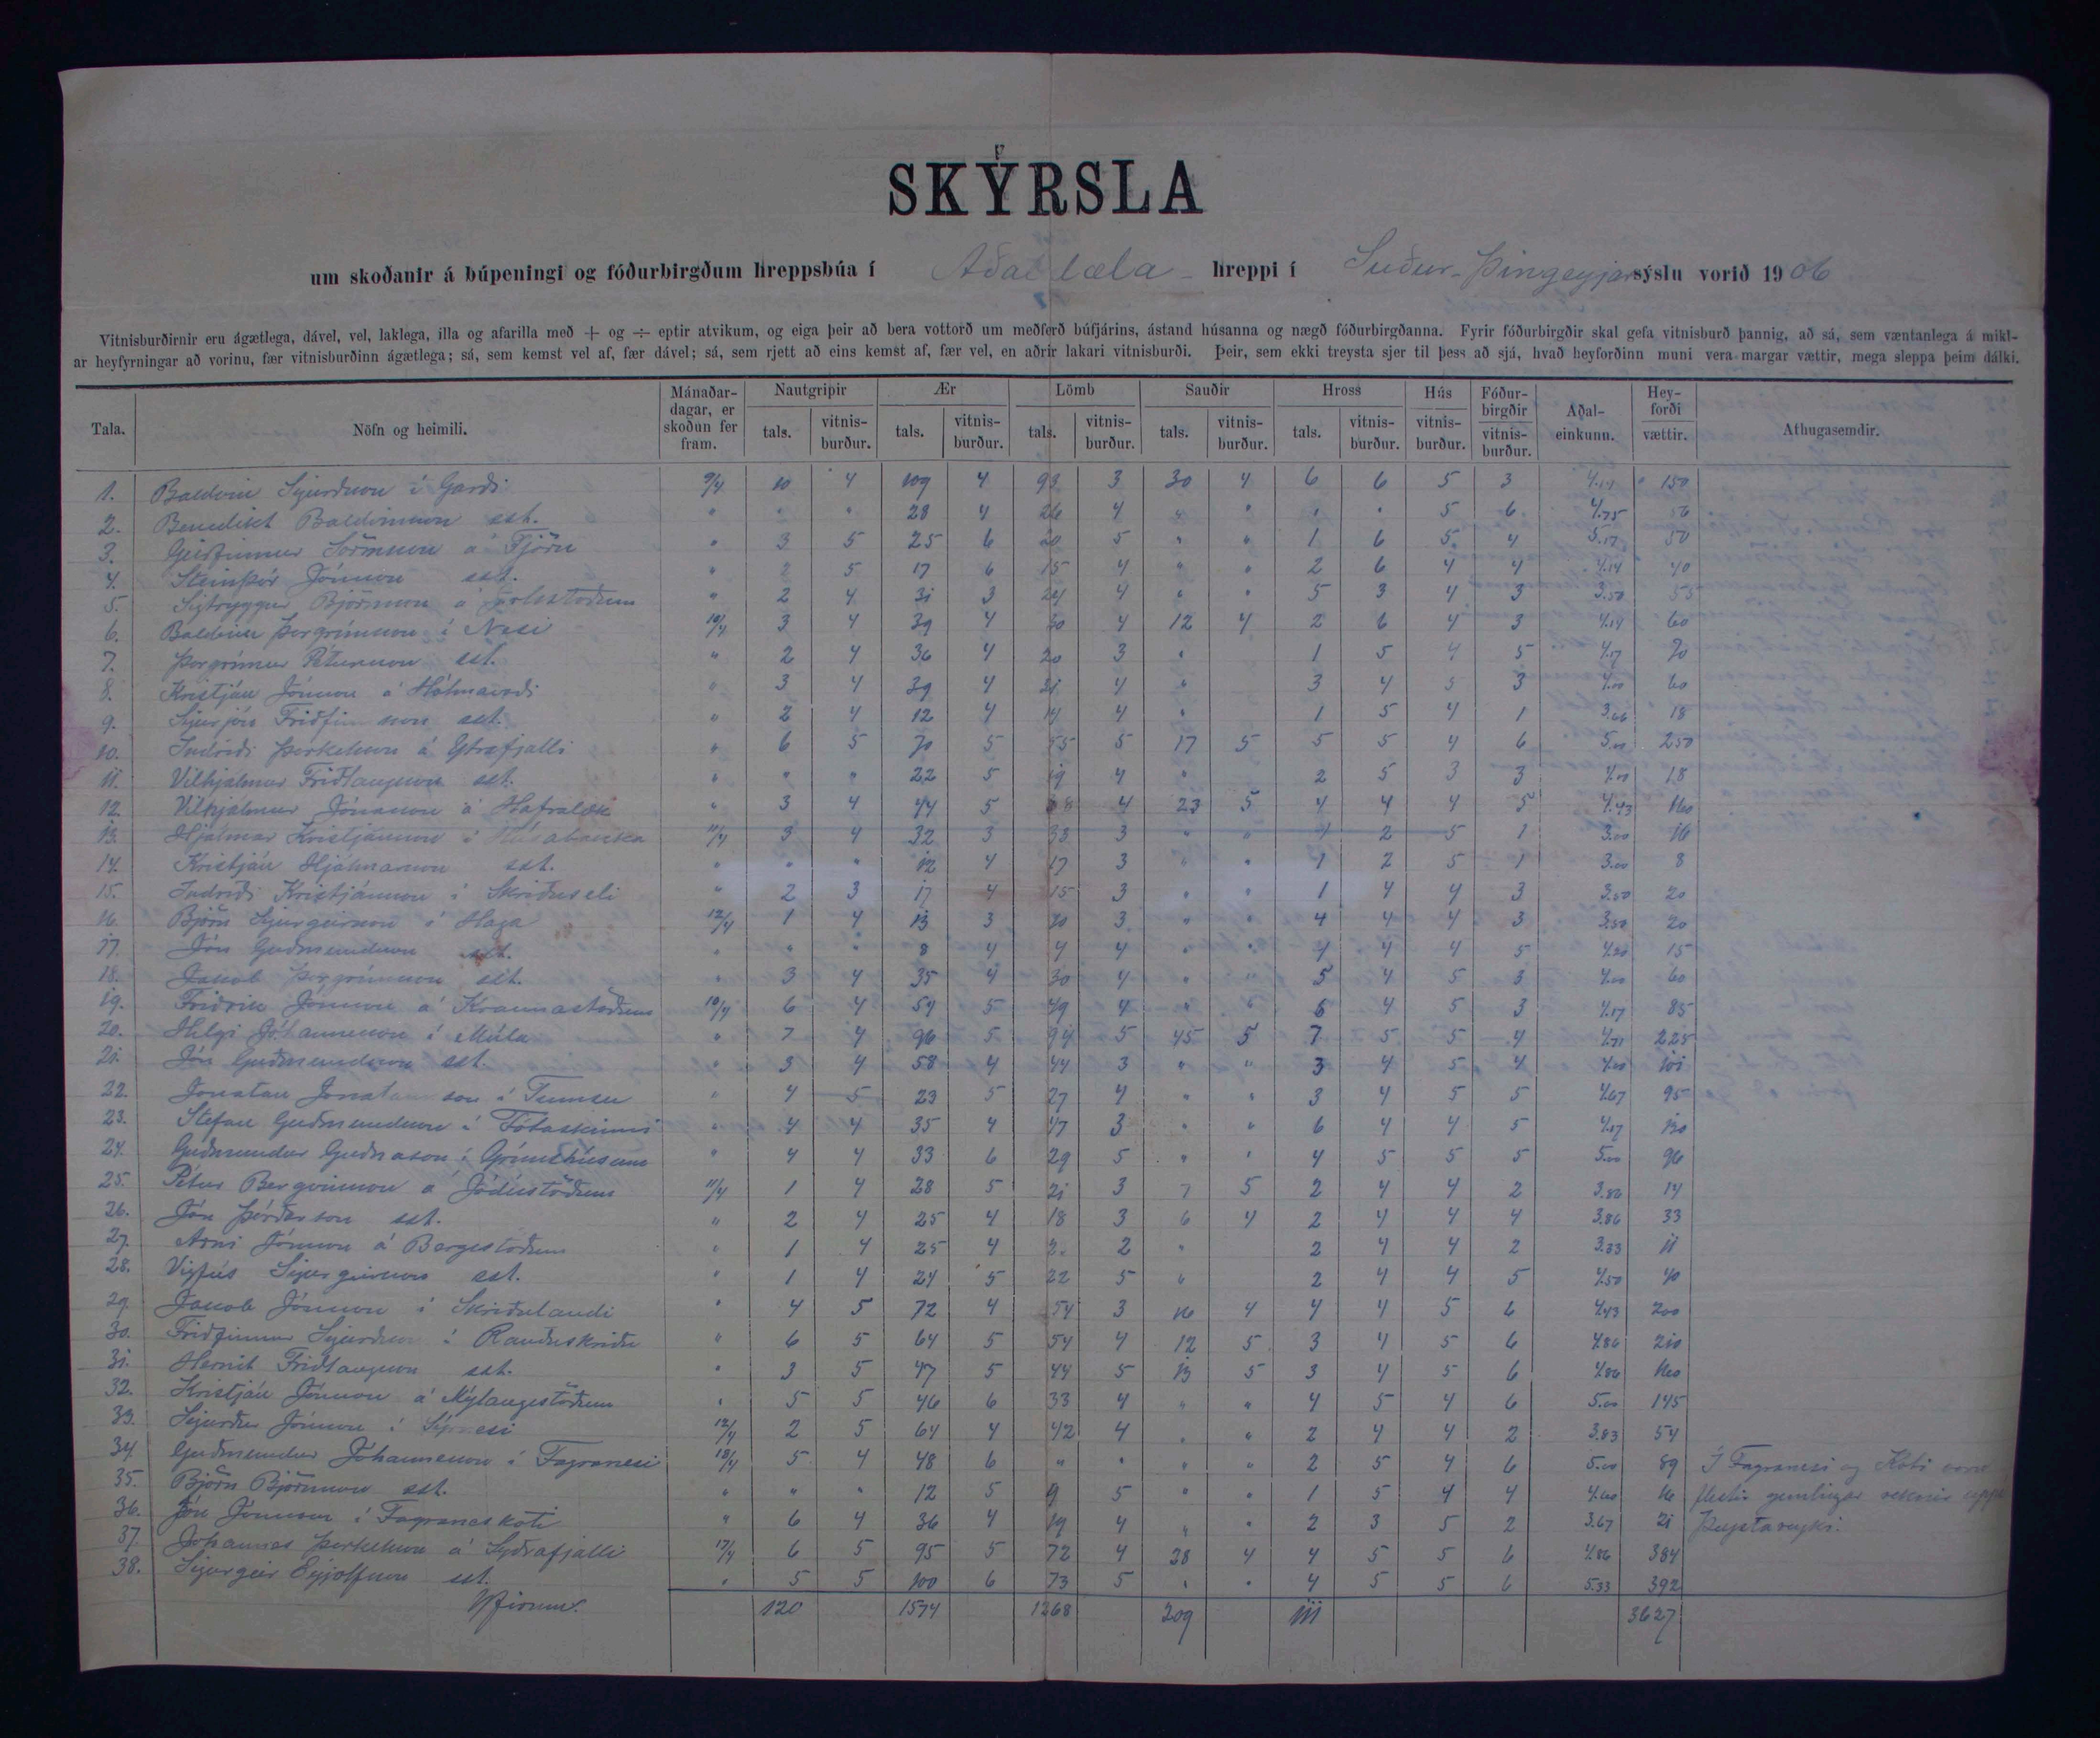 SKÝRSLA
um skoðanir á búpeningi og fóðurbirgðum hreppsbúa í Aðaldæla - hreppi í Suður-Þingeyjar sýslu vorið 1906
Vitnisburðirnir eru ágætlega, dável, vel, laklega, illa og afarilla með + og ÷ eptir atvikum, og eiga þeir að bera vottorð um meðferð búfjárins, ástand húsanna og nægð fóðurbirgðanna. Fyrir fóðurbirgðir skal gefa vitnisburð þannig, að sá, sem væntanlega á mikl-
ar heyfyrningar að vorinu, fær vitnisburðinn ágætlega; sá, sem kemst vel af, fær dável; sá, sem rjett að eins kemst af, fær vel, en aðrir lakari vitnisburði. Þeir, sem ekki treysta sjer til þess að sjá, hvað heyforðinn muni vera margar vættir, mega sleppa þeim dálki.
Tala. Nöfn og heimili. Mánaðar-dagar, er skoðun fer fram. Nautgripir tals. vitnis-burður. Ær tals. vitnis-burður. Lömb tals. vitnis-burður. Sauðir tals. vitnis-burður. Hross tals. vitnis-burður. Hús vitnis-burður. Fóður-birgðir vitnis-burður. Aðal-einkunn. Hey-forði vættir. Athugasemdir.
1. Baldvin Sigurðsson í Garði 9/4 10 4 109 4 93 3 30 4 6 6 5 3 4.14 150
2. Benedikt Baldvinsson sst. " " " 28 4 26 4 " " " " 5 6 4.75 56
3. Geirfinnur á Tjörn " 3 5 25 6 20 5 " " 1 6 5 4 5.17 50
4. Steinþór Jónsson sst. " 2 5 17 6 15 4 " " 2 6 4 4 4.14 40
5. Sigtryggur Björnsson á " 2 4 31 3 24 4 " " 5 3 4 3 3.50 55
6. Baldvin Þorgrímsson í Nesi 10/4 3 4 39 4 30 4 12 4 2 6 4 3 4.14 60
7. Þorgrímur Pétursson sst. " 2 4 36 4 20 3 " 1 5 4 5 4.17 70
8. Kristján Jónsson á Hólmavaði " 3 4 39 4 31 4 " 3 4 5 3 4.00 60
9. Sigurjón Friðfinnsson sst. " 2 4 12 4 14 4 " 1 5 4 1 3.66 18
10. Indriði Þorkelsson á Ytrafjalli " 6 5 70 5 55 5 17 5 5 5 4 6 5.00 250
11. Vilhjálmur Friðlaugsson sst. " " " 22 5 19 4 " 2 5 3 3 4.00 18
12. Vilhjálmur Jónasson á Hafralæk " 3 4 44 5 38 4 23 5 4 4 4 5 4.43 160
13. Hjálmar Kristjánsson í 11/4 3 4 32 3 33 3 " " 1 2 5 1 3.00 16
14. Kristján Hjálmarsson sst. " " " 12 4 17 3 " " 1 2 5 1 3.00 8
15. Indriði Kristjánsson í Skriðuseli " 2 3 17 4 15 3 " " 1 4 4 3 3.50 20
16. Björn Sigurgeirsson í Haga 12/4 1 4 13 3 20 3 " " 4 4 4 3 3.50 20
17. Jón Guðmundsson sst. " " " 8 4 4 4 " " 4 4 4 5 4.20 15
18. Jakob Þorgrímsson sst. " 3 4 35 4 30 4 " " 5 4 5 3 4.00 60
19. Friðrik Jónsson á Kraunastöðum 10/4 6 4 54 5 49 4 " " 6 4 5 3 4.17 85
20. Helgi Jóhannesson í Múla " 7 4 96 5 94 5 45 5 7 5 5 4 4.71 225
21. Jón Guðmundsson sst. " 3 4 58 4 44 3 " " 3 4 5 4 4.00 101
22. Jónatan Jónatansson í Tumsu " 4 5 23 5 27 4 " " 3 4 5 5 4.67 95
23. Stefán Guðmundsson í Fótaskinni " 4 4 35 4 47 3 " " 6 4 4 5 4.17 130
24. Guðmundur Guðnason í Grímshúsum " 4 4 33 6 29 5 " " 4 5 5 5 5.00 96
25. Pétur Bergvinsson á Jódísstöðum 11/4 1 4 28 5 21 3 7 5 2 4 4 2 3.86 14
26. Jón Þórðarson sst. " 2 4 25 4 18 3 6 4 2 4 4 4 3.86 33
27. Árni Jónsson á Bergsstöðum " 1 4 25 4 2 " 2 4 4 2 3.33 11
28. Vigfús Sigurgeirsson sst. " 1 4 24 5 22 5 " 2 4 4 5 4.50 40
29. Jakob Jónsson í Skriðulandi " 4 5 72 4 54 3 16 4 4 4 5 6 4.43 200
30. Friðfinnur Sigurðsson í Rauðuskriðu " 6 5 64 5 54 4 12 5 3 4 5 6 4.86 210
31. Hernit Friðlaugsson sst. " 3 5 47 5 44 5 13 5 3 4 5 6 4.86 160
32. Kristján Jónsson á Mýlaugsstöðum " 5 5 46 6 33 4 " " 4 5 4 6 5.00 145
33. Sigurður Jónsson í Sýrnesi 12/4 2 5 64 4 42 4 " " 2 4 4 2 3.83 54
34. Guðmundur Jóhannesson í Fagranesi 18/4 5 4 48 6 " " " " 2 5 4 6 5.00 89 Í Fagranesi og Koti voru
35. Björn Björnsson sst. " " " 12 5 9 5 " " 1 5 4 4 4.60 16 flestir gemlingar reknir uppá
36. Jón Jónsson í Fagraneskoti " 6 4 36 4 19 4 " " 2 3 5 2 3.67 21 Þeystareyki.
37. Jóhannes Þorkelsson á Syðrafjalli 17/4 6 5 95 5 72 4 28 4 4 5 5 6 4.86 384
38. Sigurgeir Eyjólfsson sst. " 5 5 100 6 73 5 " " 4 5 5 6 5.33 392
120 1574 1268 209 111 3627